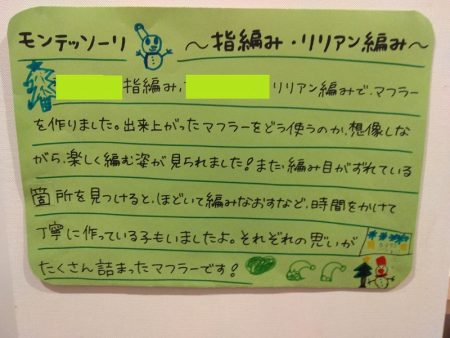 モンテッソーリ ～指編み・リリアン編み～
指編み,リリアン編みで、マフラー
を作りました。出来上がったマフラーをどう使うのか、想像しな
がら、楽しく編む姿が見られました!また、編み目がずれている
箇所を見つけると、ほどいて編みなおすなど、時間をかけて
丁寧に作っている子もいましたよ。それぞれの思いが
たくさん詰まったマフラーです!